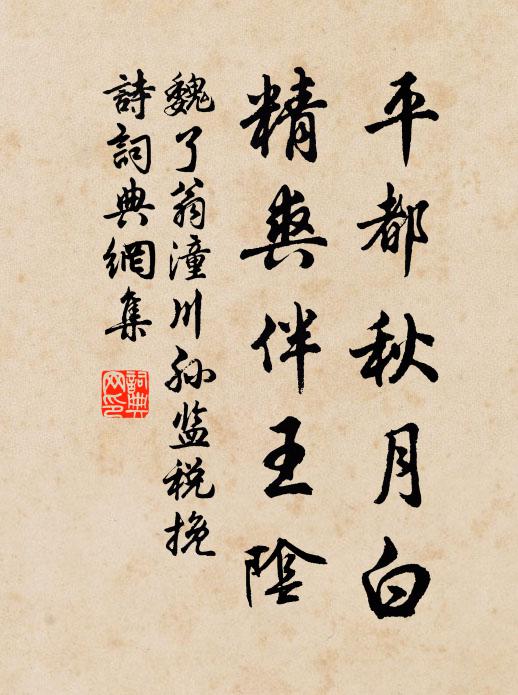 平都秋月白
精爽伴王陰
魏了翁潼川孙监税挽
詩詞典網集
詞典网印